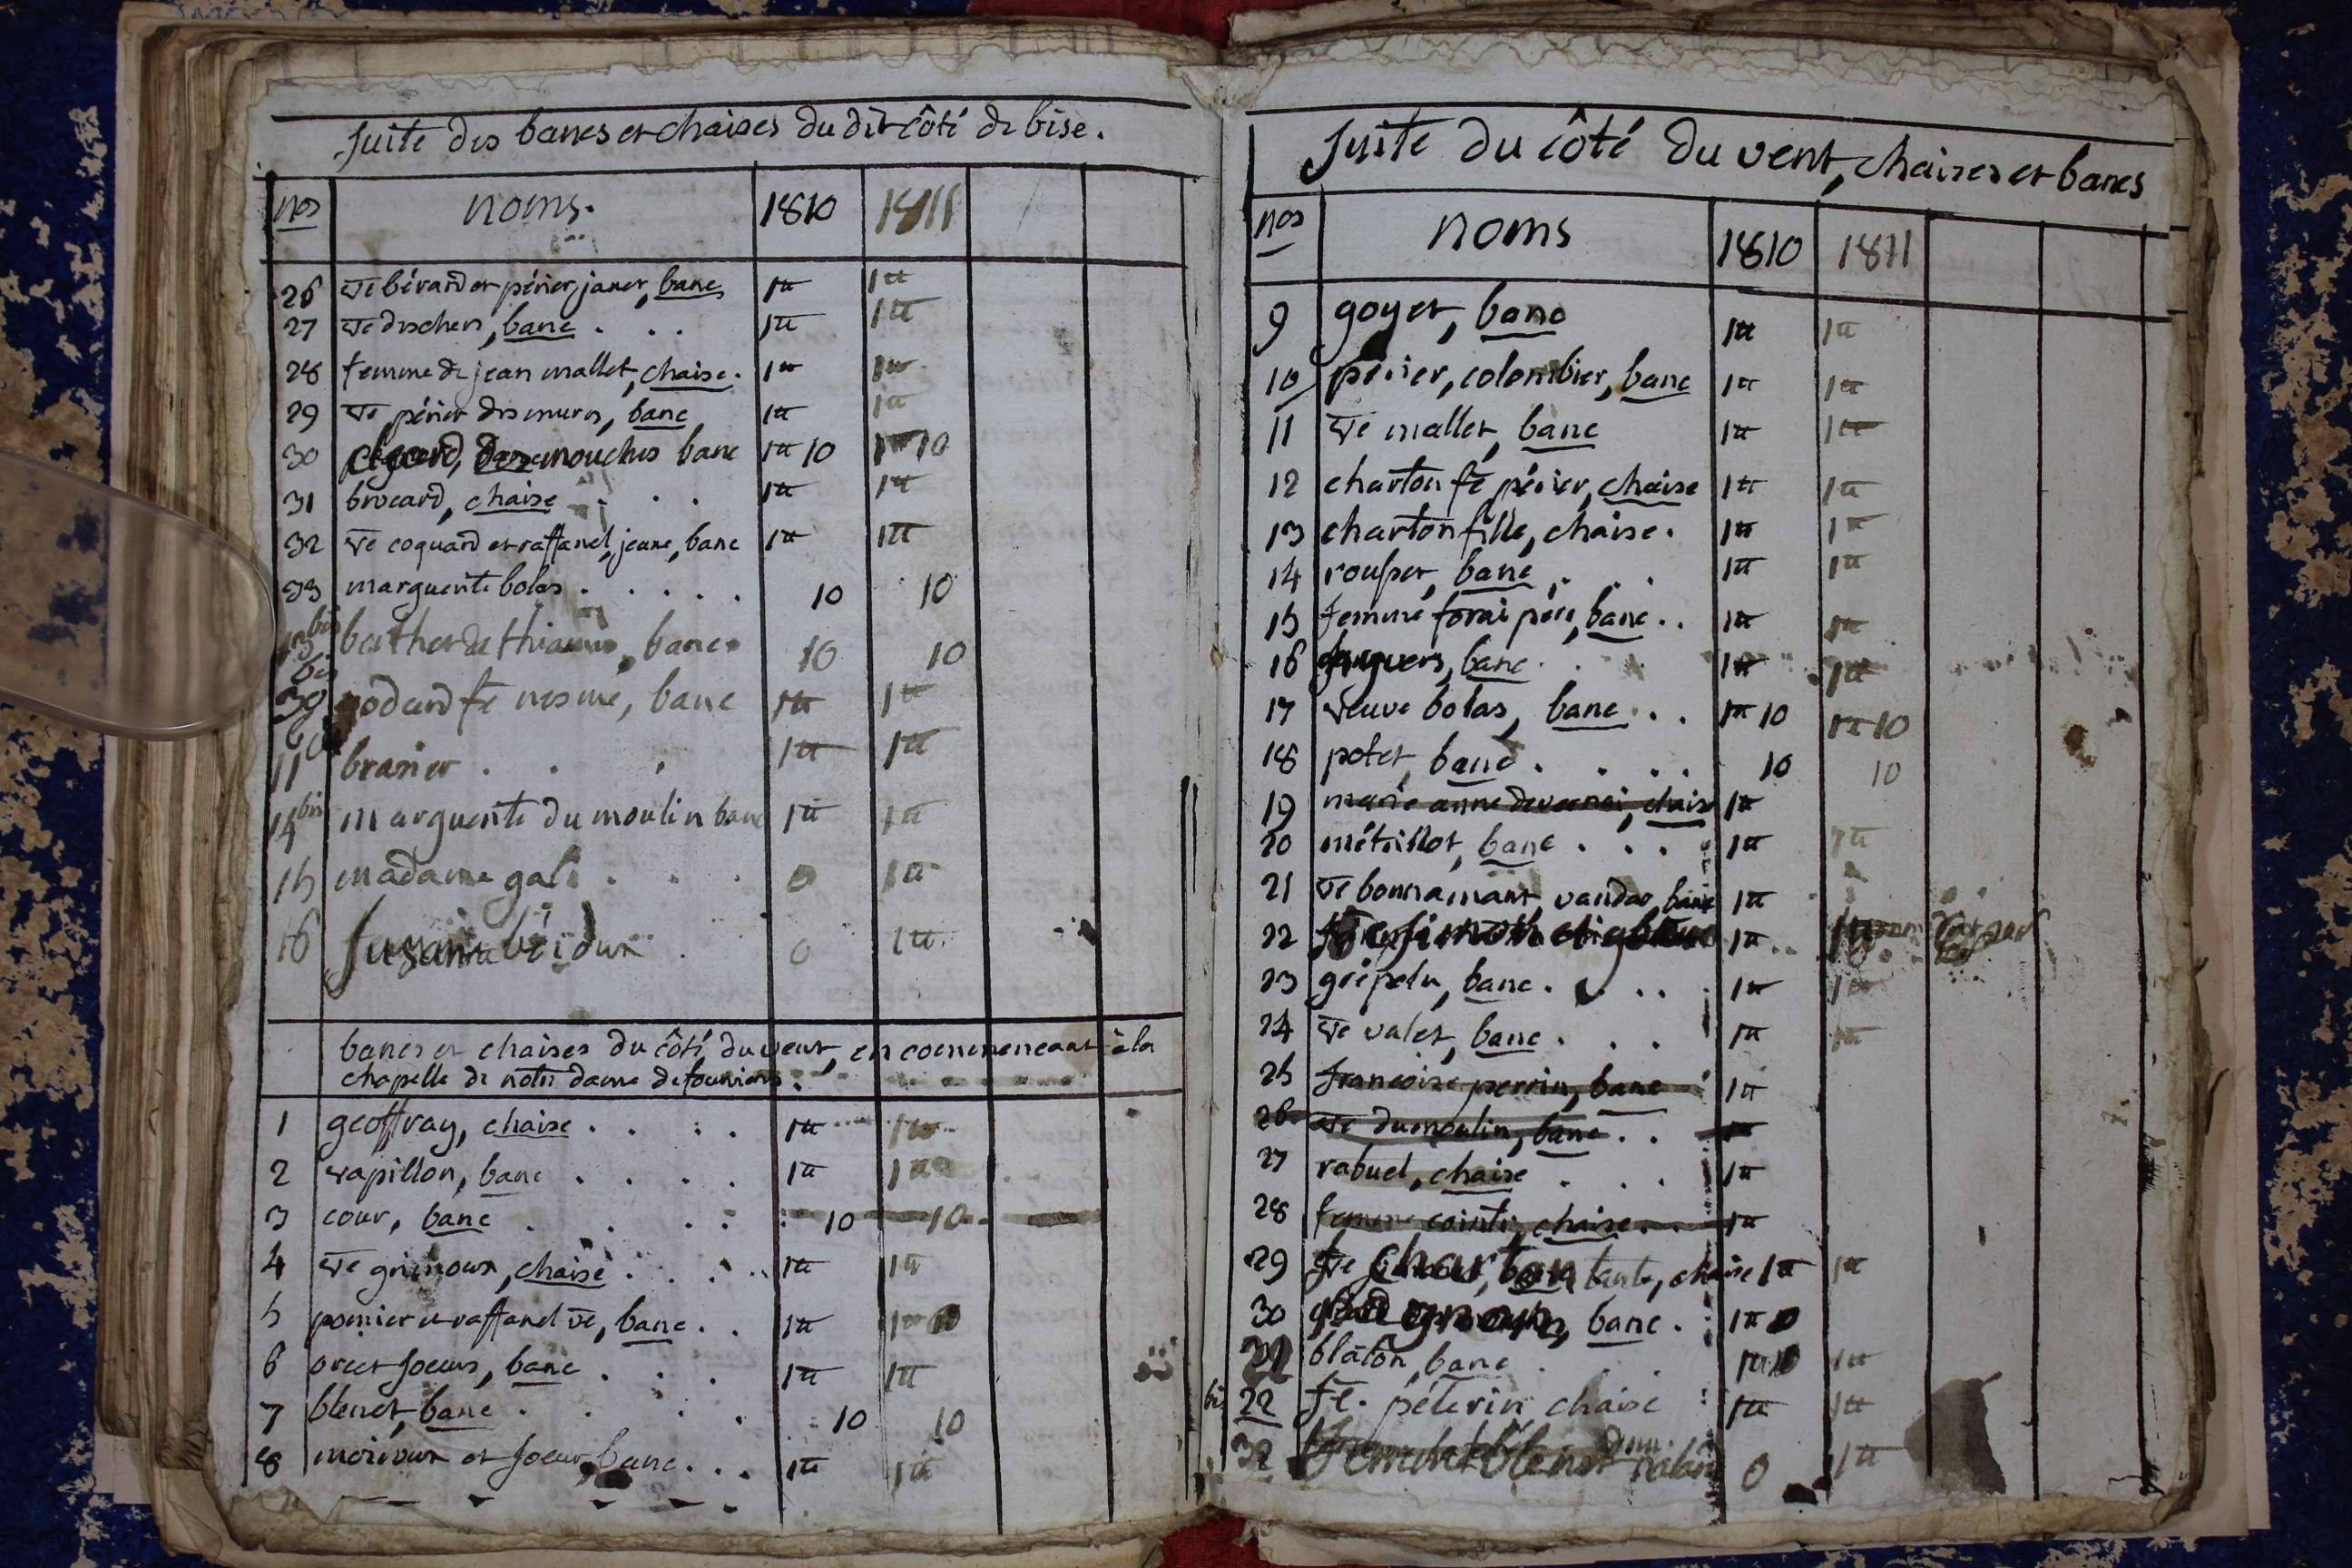 Suite des bancs et chaises du dit côté de bise.
nos noms. 1810 1811
26 ve bérard et périer, janet, banc 1# 1#
27 ve duscher, banc . . . 1# 1#
28 femme de jean mallet, chaise. 1# 1#
29 ve périer des murs, banc 1# 1#
30 mouches banc 1# 10 1# 10
31 brocard, chaise . . . 1# 1#
32 ve coquard et raffanel, jeane, banc 1# 1#
33 marguerite bolas . . . . . 10 10
13 bis berthet de banc 10 10
bis
39 godard fe nesme, banc 1# 1#
11 brasier . . . 1# 1#
14 bis marguerite dumoulin banc 1# 1#
15 madame gali . . . 0 1#
16 Susanne . 0 1#
bancs et chaises du côté du vent, en commencant à la
chapelle de notre dame de
1 geoffray, chaise . . . . 1# 1#
2 vapillon, banc . . . . 1# 1#
3 cour, banc . . . . 10 10
4 ve grimoux, chaise . . . 1# 1#
5 pomier et raffanel ve, banc . . 1# 1# 10
6 orcet soeurs, banc . . . 1# 1#
7 blenet, banc . . . . 10 10
8 moiroux et soeur, banc . . . 1# 1#
Suite du côté du vent, chaises et bancs
nos noms 1810 1811
9 goyet, banc 1# 1#
10 périer, colombier, banc 1# 1#
11 ve mallet, banc 1# 1#
12 charton fe périer, chaise 1# 1#
13 charton fille, chaise. 1# 1#
14 rousset, banc . . . 1# 1#
15 femme forai père, banc . . 1# 1#
16 banc . 1# 1#
17 veuve bolas, banc . . 1# 10 1# 10
18 potet, banc . . . . 10 10
19 marie anne devernai, chaise 1#
20 métrillot, banc . . . 1# 1#
21 ve bonnamant, vandar, banc 1#
22 1#
23 gripelu, banc . . . . 1# 1#
24 ve valet, banc . . . 1# 1#
25 francoise perrin, banc 1#
26 ve dumoulin, banc . . 1#
27 rabuel, chaise . . . 1#
28 femme cointi, chaise . . 1#
29 fe charton tante, chaise 1# 1#
30 banc . 1#
31 blaton, banc . . 1# 10 1#
bis 22 fe. pélerin chaise 1# 1#
32 0 1#